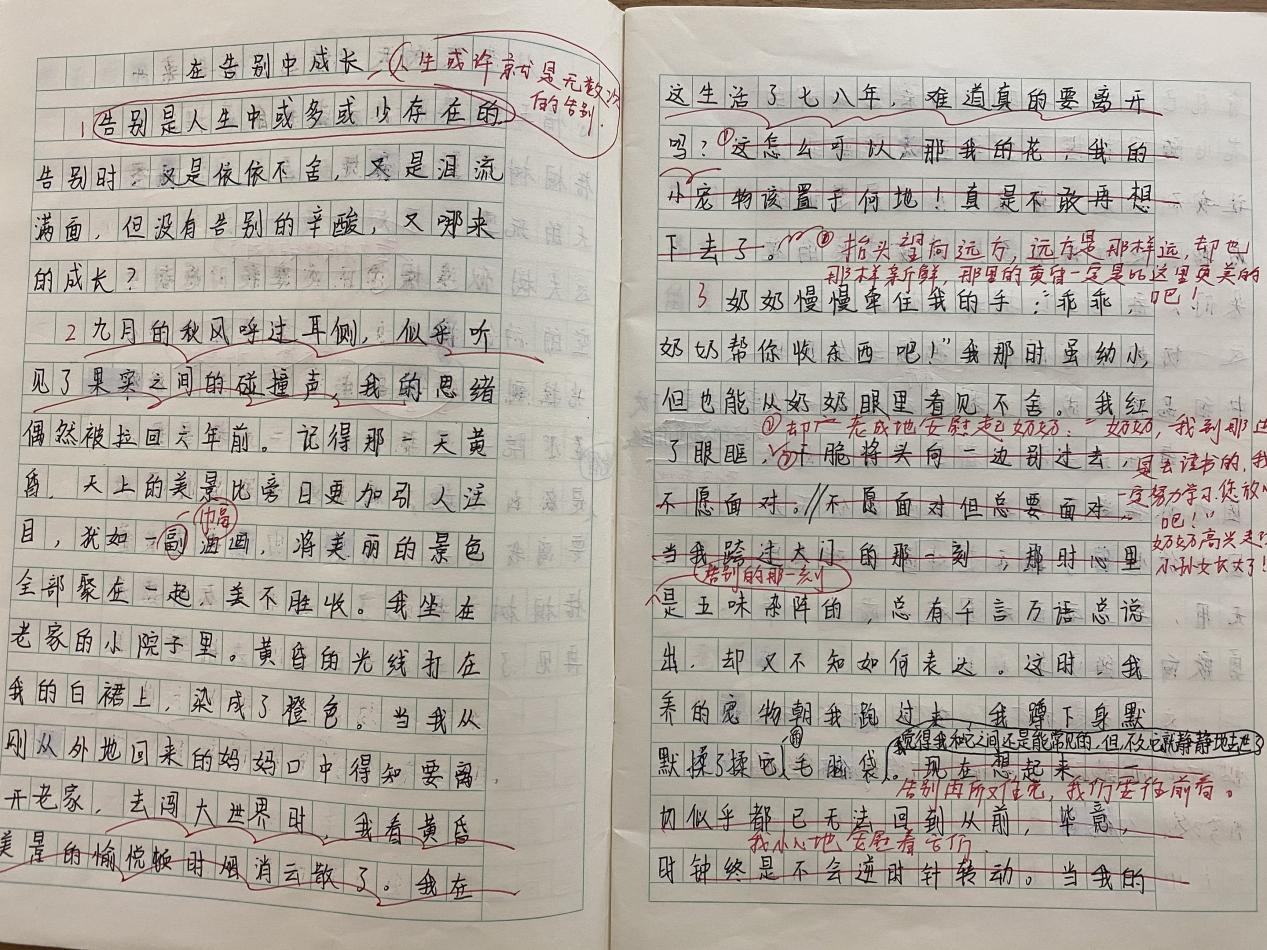 在告别中成长
人生或许就是无数次
的告别.
1 告别是人生中或多或少存在的.
告别时,又是依依不舍,又是泪流
满面,但没有告别的辛酸,又哪来
的成长?
2 九月的秋风呼过耳侧,似乎听
见了果实之间的碰撞声,我的思绪
偶然被拉回六年前。记得那一天黄
昏,天上的美景比旁日更加引人注
巾畐
目,犹如一副油画,将美丽的景色
全部聚在一起,美不胜收。我坐在
老家的小院子里。黄昏的光线打在
我的白裙上,染成了橙色。当我从
刚从外地回来的妈妈口中得知要离
开老家,去闯大世界时,我看黄昏
美景的愉悦顿时烟消云散了。我在
这生活了七八年,难道真的要离开
吗?①这怎么可以,那我的花,我的
小宠物该置于何地!真是不敢再想
下去了。②抬头望向远方,远方是那样远,却也
那样新鲜,那里的黄昏一定是比这里更美的
吧!
3 奶奶慢慢牵住我的手:“乖乖,
奶奶帮你收东西吧!”我那时虽幼小,
但也能从奶奶眼里看见不舍。我红
①却老成地安慰起奶奶:“奶奶,我到那边
了眼眶,②干脆将头向一边别过去,
是去读书的,我
不愿面对。//不愿面对但总要面对,
一定努力学习.您放心
吧!”
当我跨过大门的那一刻,那时心里
奶奶高兴
小孙女长大了!
告别的那一刻
是五味杂阵的,总有千言万语总说
出,却又不知如何表达。这时,我
养的宠物朝我跑过来,我蹲下身默
觉得我和它之间还是能常见的,但不久它就静静地去世了
默揉了揉它的毛脑袋。现在想起来,一
告别再所难免,我们要往前看。
切似乎都已无法回到从前,毕竟,
我小心地安慰着它们.
时钟终是不会逆时针转动。当我的